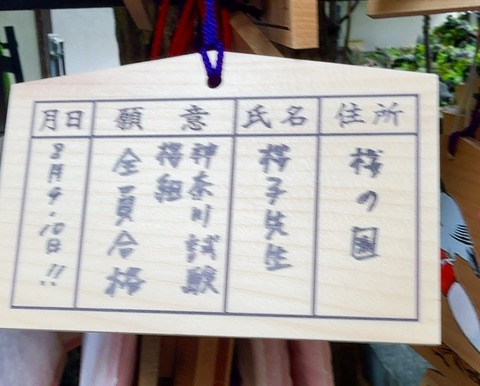 住所
氏名
願意
月日
桜の国
桜子先生
神奈川試験
桜組
全員合格
8月9.10日!!